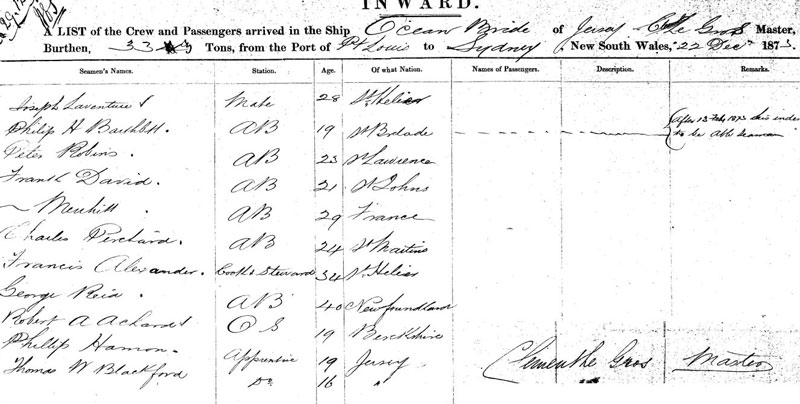 INWARD.
A LIST of the Crew and Passengers arrived in the Ship Ocean Bride of Jersey C Le Gros Master,
Burthen, 33 Tons, from the Port of Pt Louis to Sydney, New South Wales, 22 Decr 1873.
Seamen's Names. Station. Age. Of what Nation. Names of Passengers. Description. Remarks.
Joseph Laventure Mate 28 St Helier
Philip H Bart 19 AB St Brelade After 13 Feby 1873 this
to be Able Seaman
Peter Robins. AB 23 St Lawrence
Frank David. AB 21 St Johns
~ AB 29 France
Charles Perchard. AB 24 St Martins
Francis Alexander. Cook & Steward 34 St Helier
George Reid. AB 40 Newfoundland
Robert A Achard OS 19 Berkshire
Phillip Hamon. Apprentice 19 Jersey Clement Le Gros Master
Thomas W Blackford Do 16 "